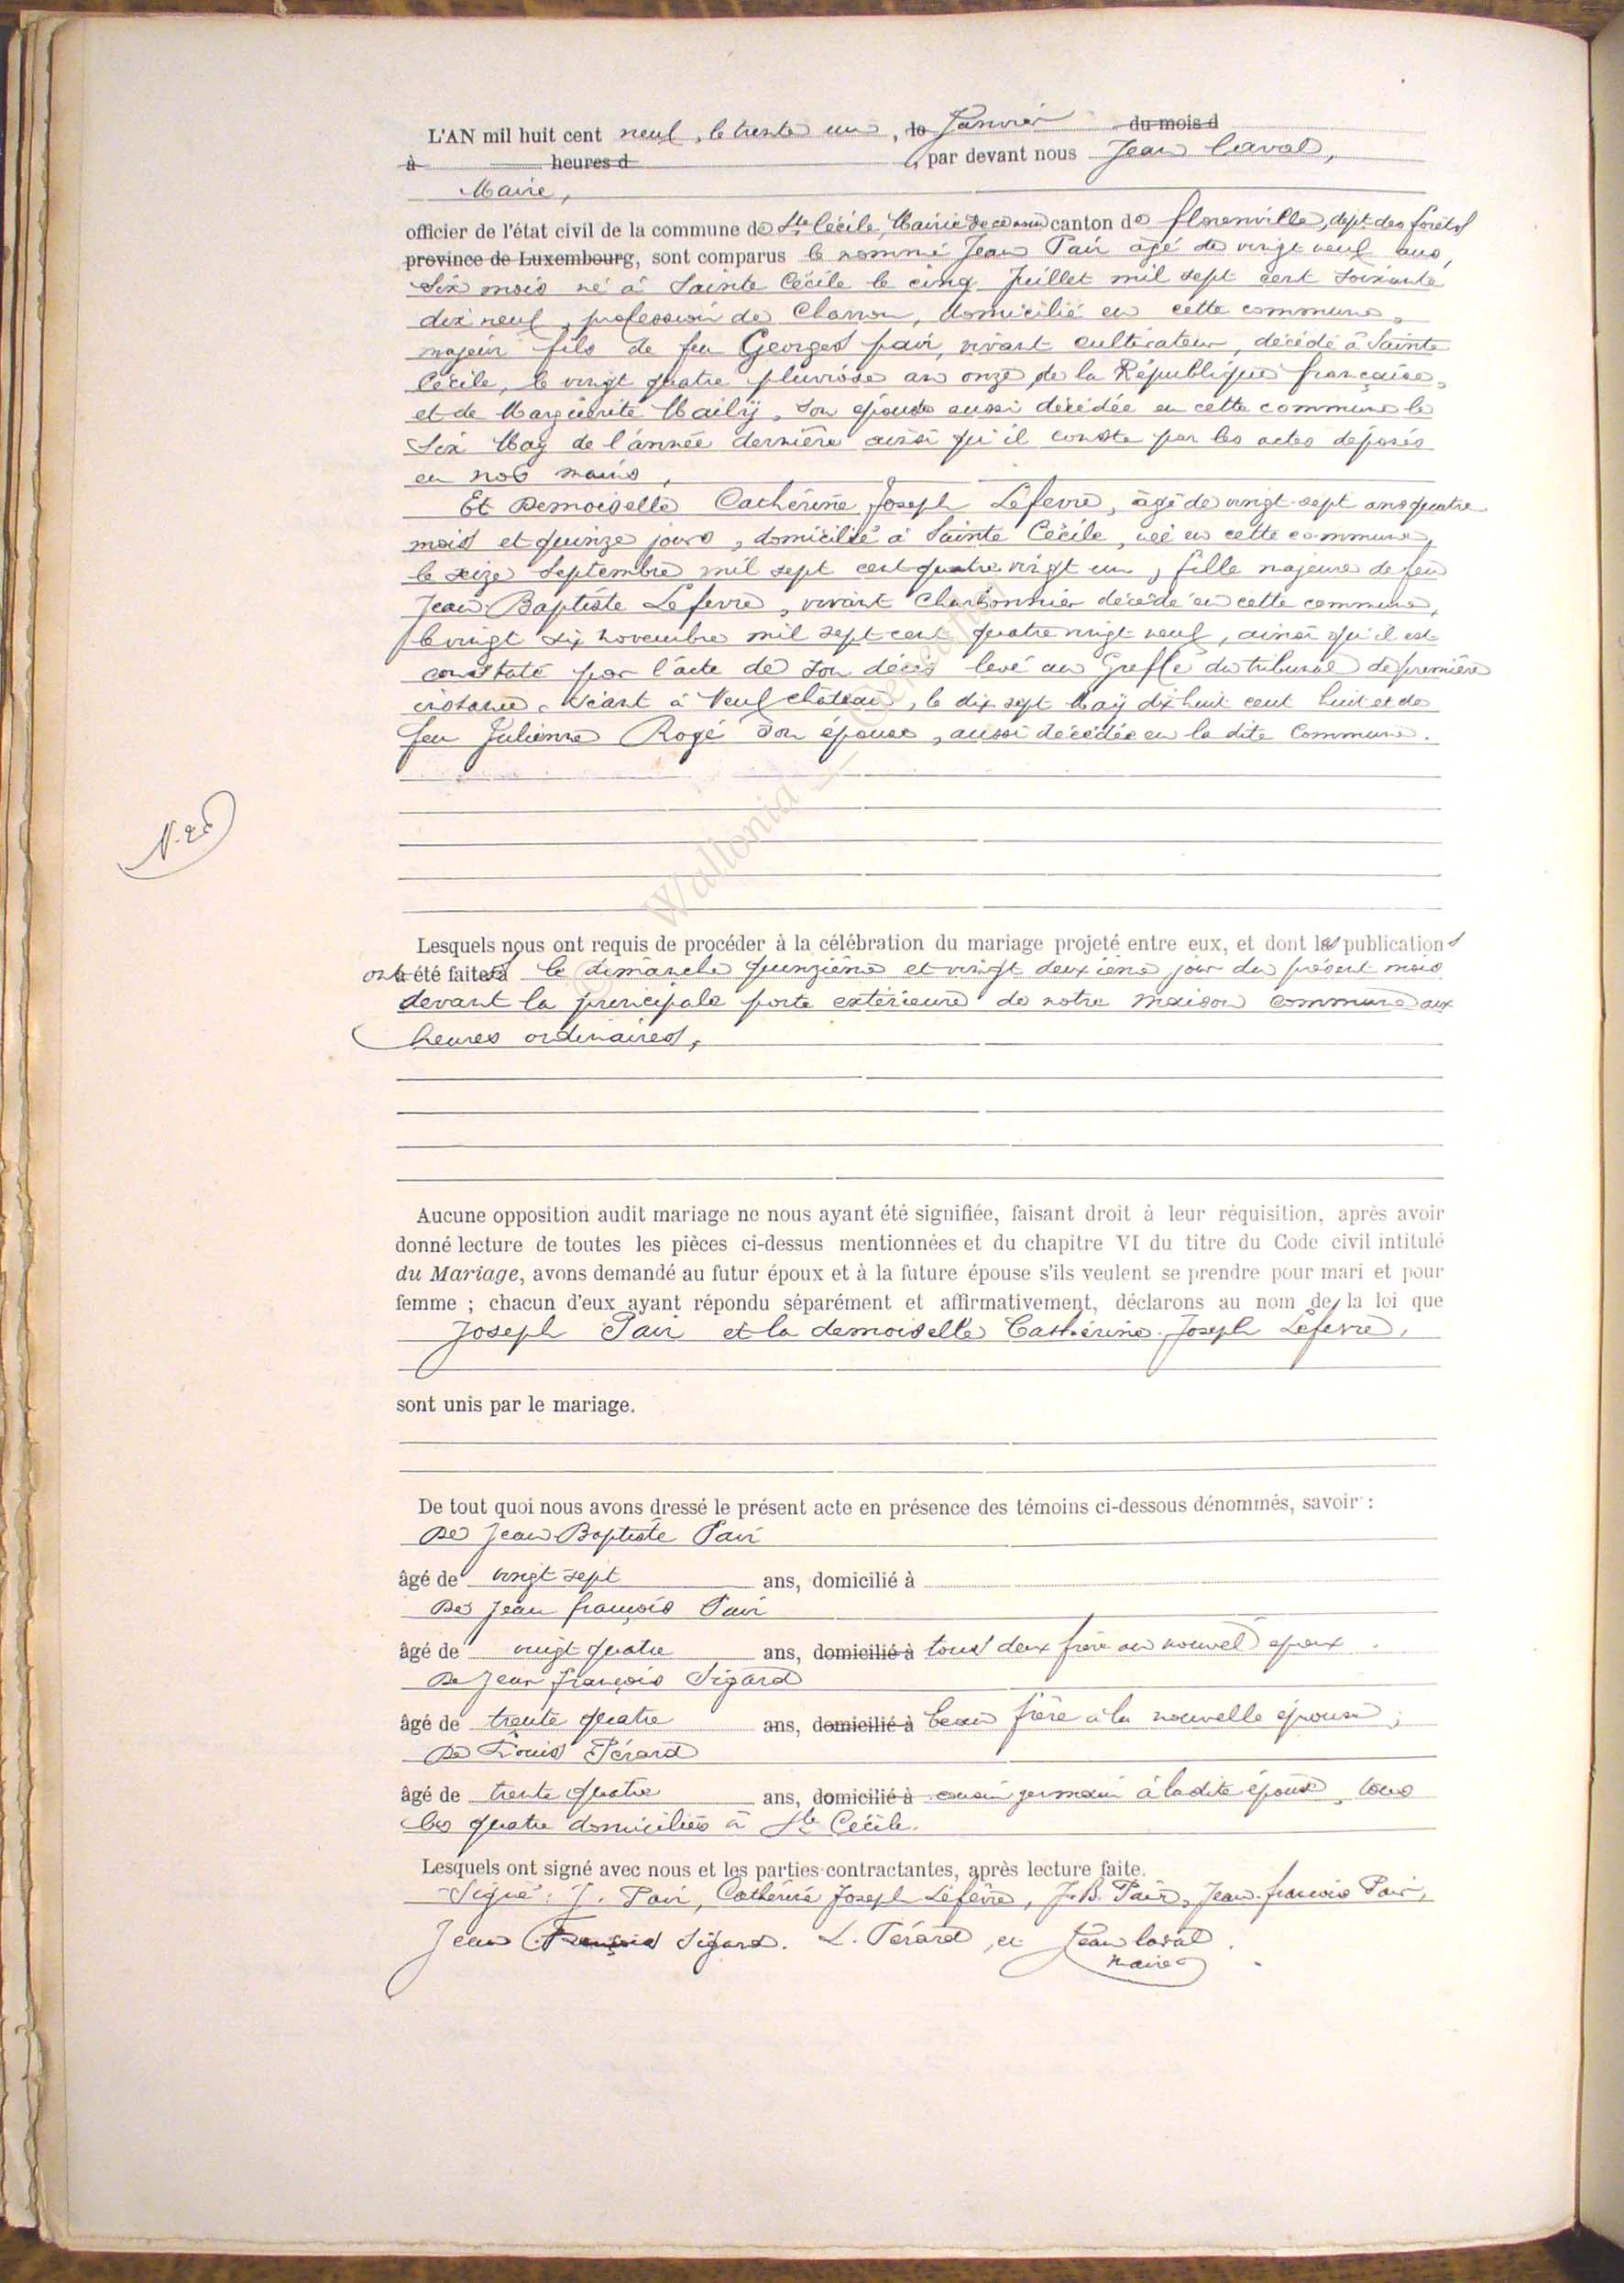 L'AN mil huit cent neuf, le trente un, le Janvier du mois d
à heures d , par devant nous Jean Laval,
Maire,
officier de l'état civil de la commune de Ste Cécile, Mairie de ce nom canton de florenville, dept. des forêts
province de Luxembourg, sont comparus le nommé Jean Pair âgé de vingt neuf ans,
Six mois né à Sainte Cécile le cinq Juillet mil sept cent soixante
dix neuf, profession de Charron, domicilié en cette commune,
majeur fils de feu Georges pair, vivant cultivateur, décédé à Sainte
Cécile, le vingt quatre pluviôse an onze de la République française,
et de Marguérite Maily, son épouse aussi décédée en cette commune le
Six May de l'année dernière ainsi qu'il conste par les actes déposés
en nos mains,
Et Demoiselle Cathérine Joseph Lefevre, âgé de vingt-sept ans quatre
mois et quinze jours, domicilié à Sainte Cécile, née en cette commune,
le seize Septembre mil sept cent quatre vingt un, fille majeure de feu
Jean Baptiste Lefevre, vivant Charbonnier décédé en cette commune,
le vingt six novembre mil sept cent quatre vingt neuf, ainsi qu'il est
constaté par l'acte de son décès levé au Greffe du tribunal de première
instance séant à Neufchâteau, le dix sept May dix huit cent huit et de
feu Julienne Rogé son épouse, aussi décédée en la dite Commune.
N. 26
Lesquels nous ont requis de procéder à la célébration du mariage projeté entre eux, et dont les publications
ont été faites à le dimanche quinzième et vingt deuxième jour du présent mois
devant la principale porte extérieure de notre maison commune aux
heures ordinaires,
Aucune opposition audit mariage ne nous ayant été signifiée, faisant droit à leur réquisition, après avoir
donné lecture de toutes les pièces ci-dessus mentionnées et du chapitre VI du titre du Code civil intitulé
du Mariage, avons demandé au futur époux et à la future épouse s'ils veulent se prendre pour mari et pour
femme ; chacun d'eux ayant répondu séparément et affirmativement, déclarons au nom de la loi que
Joseph Pair et la demoiselle Cathérine Joseph Lefevre,
sont unis par le mariage.
De tout quoi nous avons dressé le présent acte en présence des témoins ci-dessous dénommés, savoir :
De Jean Baptiste Pair
âgé de vingt sept ans, domicilié à
De Jean françois Pair
âgé de vingt quatre ans, domicilié à tous deux frère au nouvel époux.
De Jean françois Sigard
âgé de trente quatre ans, domicilié à beau frère à la nouvelle épouse,
De Louis Pérard
âgé de trente quatre ans, domicilié à cousin germain à ladite épouse, tous
les quatre domiciliés à Ste Cécile.
Lesquels ont signé avec nous et les parties contractantes, après lecture faite.
Signé: J. Pair, Cathérine Joseph Lefèvre, J.B. Pair, Jean-françois Pair,
Jean François Sigard. L. Pérard et Jean laval.
maire
© Wallonia